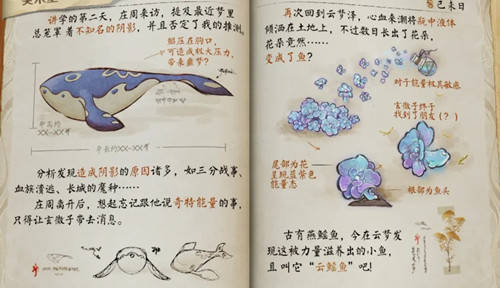 讲学的第二天，庄周来访，提及最近梦里
总笼罩着不知名的阴影，并且否定了我的推测。
躺压在胸口，
可造成较大压力，
带来噩梦？
身高约
XX-XX
身长约XX-XX
分析发现造成阴影的原因诸多，如三分战事、
血族溃逃、长城的魔种……
在庄周离开后，想起忘记跟他说奇特能量的事，
只得让玄微子带去消息。
己未日
再次回到云梦泽，心血来潮将瓶中液体
倾洒在土地上，不过数日长出了花朵，
花朵竟然……
变成了鱼？
对于能量极其敏感
玄微子终于
找到了朋友（？）
尾部为花
呈现蓝紫色
能量态
根部为鱼头
古有燕鳐鱼，今在云梦发
现这被力量滋养出的小鱼，
且叫它“云鳐鱼”吧！